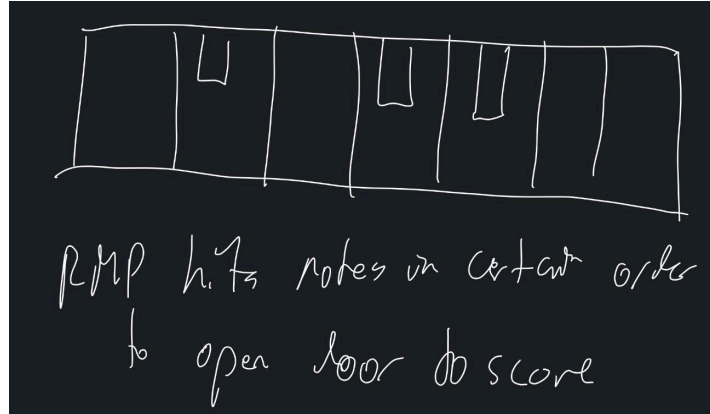 RMP hits notes in certain order
to open door to score